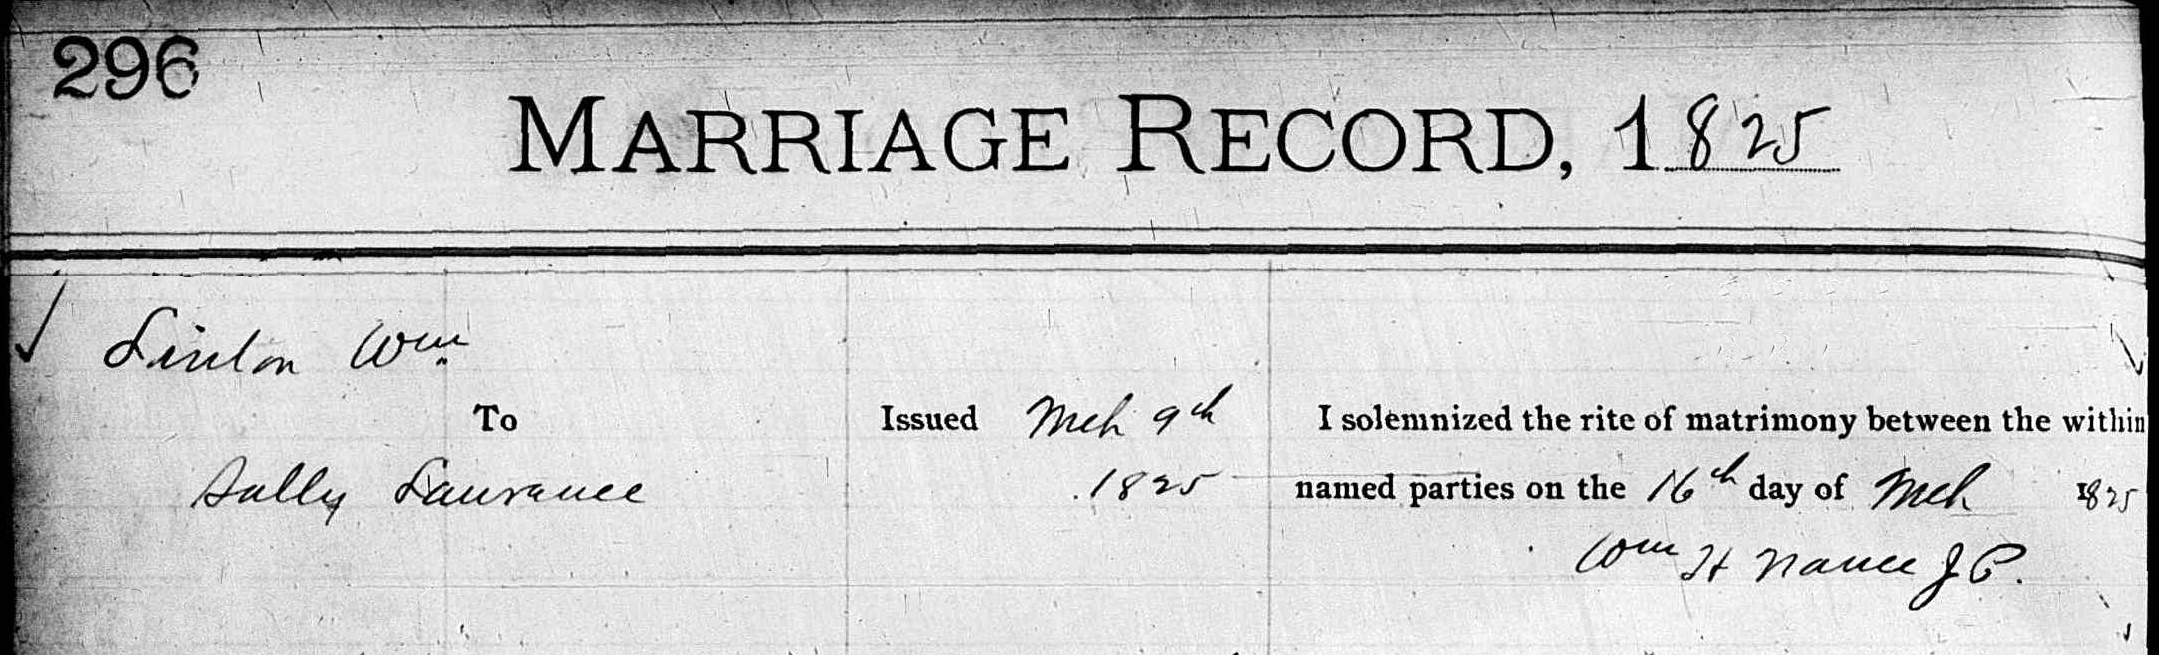 296
MARRIAGE RECORD, 1825
Linton Wm
To
Issued Mch 9th
I solemnized the rite of matrimony between the within
Sally Laurance
1825
named parties on the 16th day of Mch 1825
Wm H Nance J P.